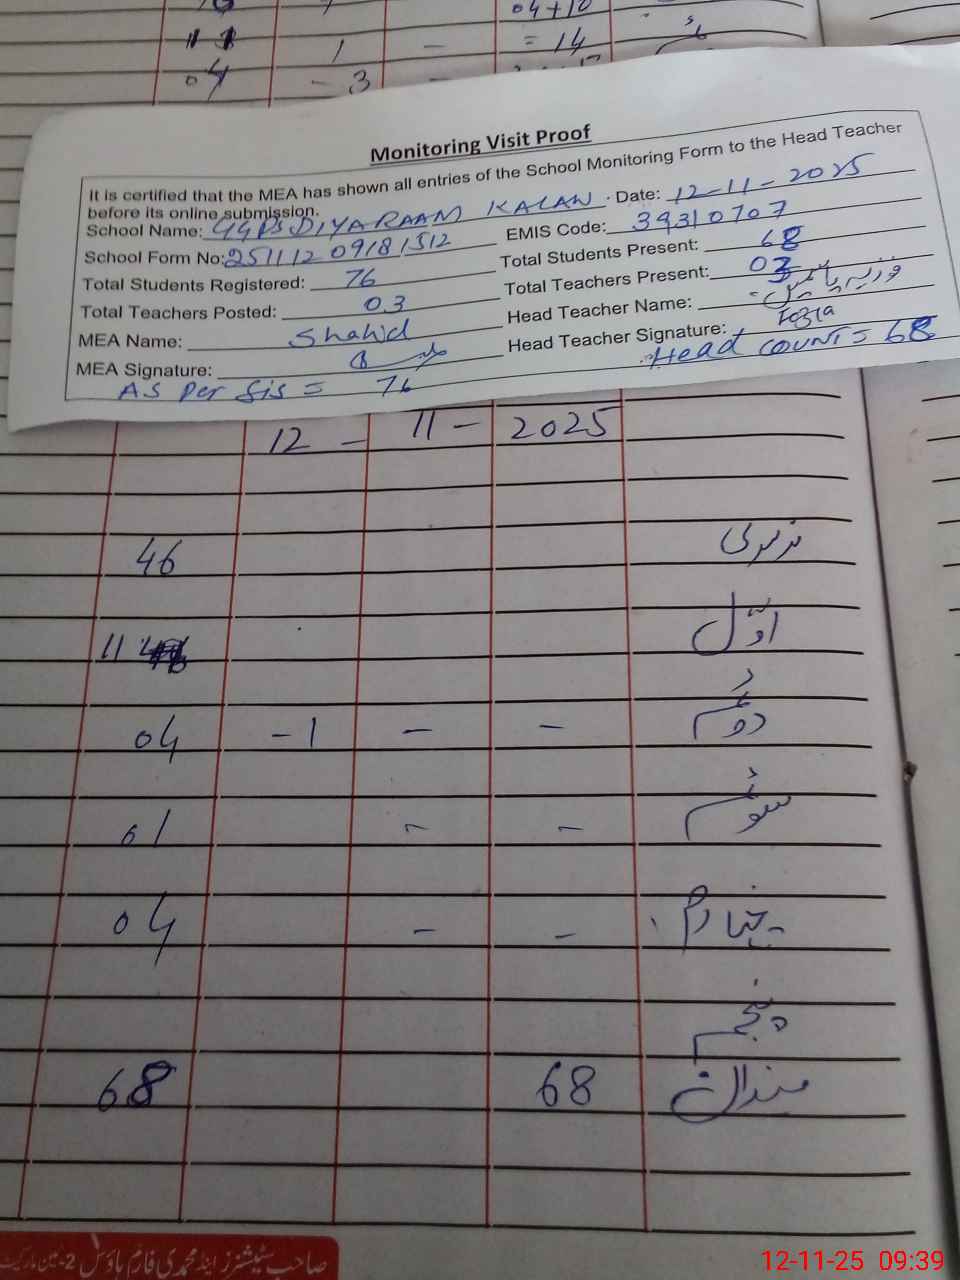 04+10
11 1 - = 14
04 - 3
Monitoring Visit Proof
It is certified that the MEA has shown all entries of the School Monitoring Form to the Head Teacher
before its online submission.
School Name: GGPS DIYARAAM KALAN . Date: 12-11-2025
School Form No: 251112 09181512 EMIS Code: 39310707
Total Students Registered: 76 Total Students Present: 68
Total Teachers Posted: 03 Total Teachers Present: 03
MEA Name: Shahid Head Teacher Name: فوزیہ یاسمین
MEA Signature: Head Teacher Signature: Fozia
As Per Sis = 76 Head count = 68
12 - 11 - 2025
46 نرسری
11 اوّل
04 -1 - - دوئم
01 - - سوئم
04 - - چہارم
پنجم
68 68 میزان
صاحب سٹیشنرز اینڈ محمدی فارم ہاؤس 2-مین مارکیٹ
12-11-25 09:39